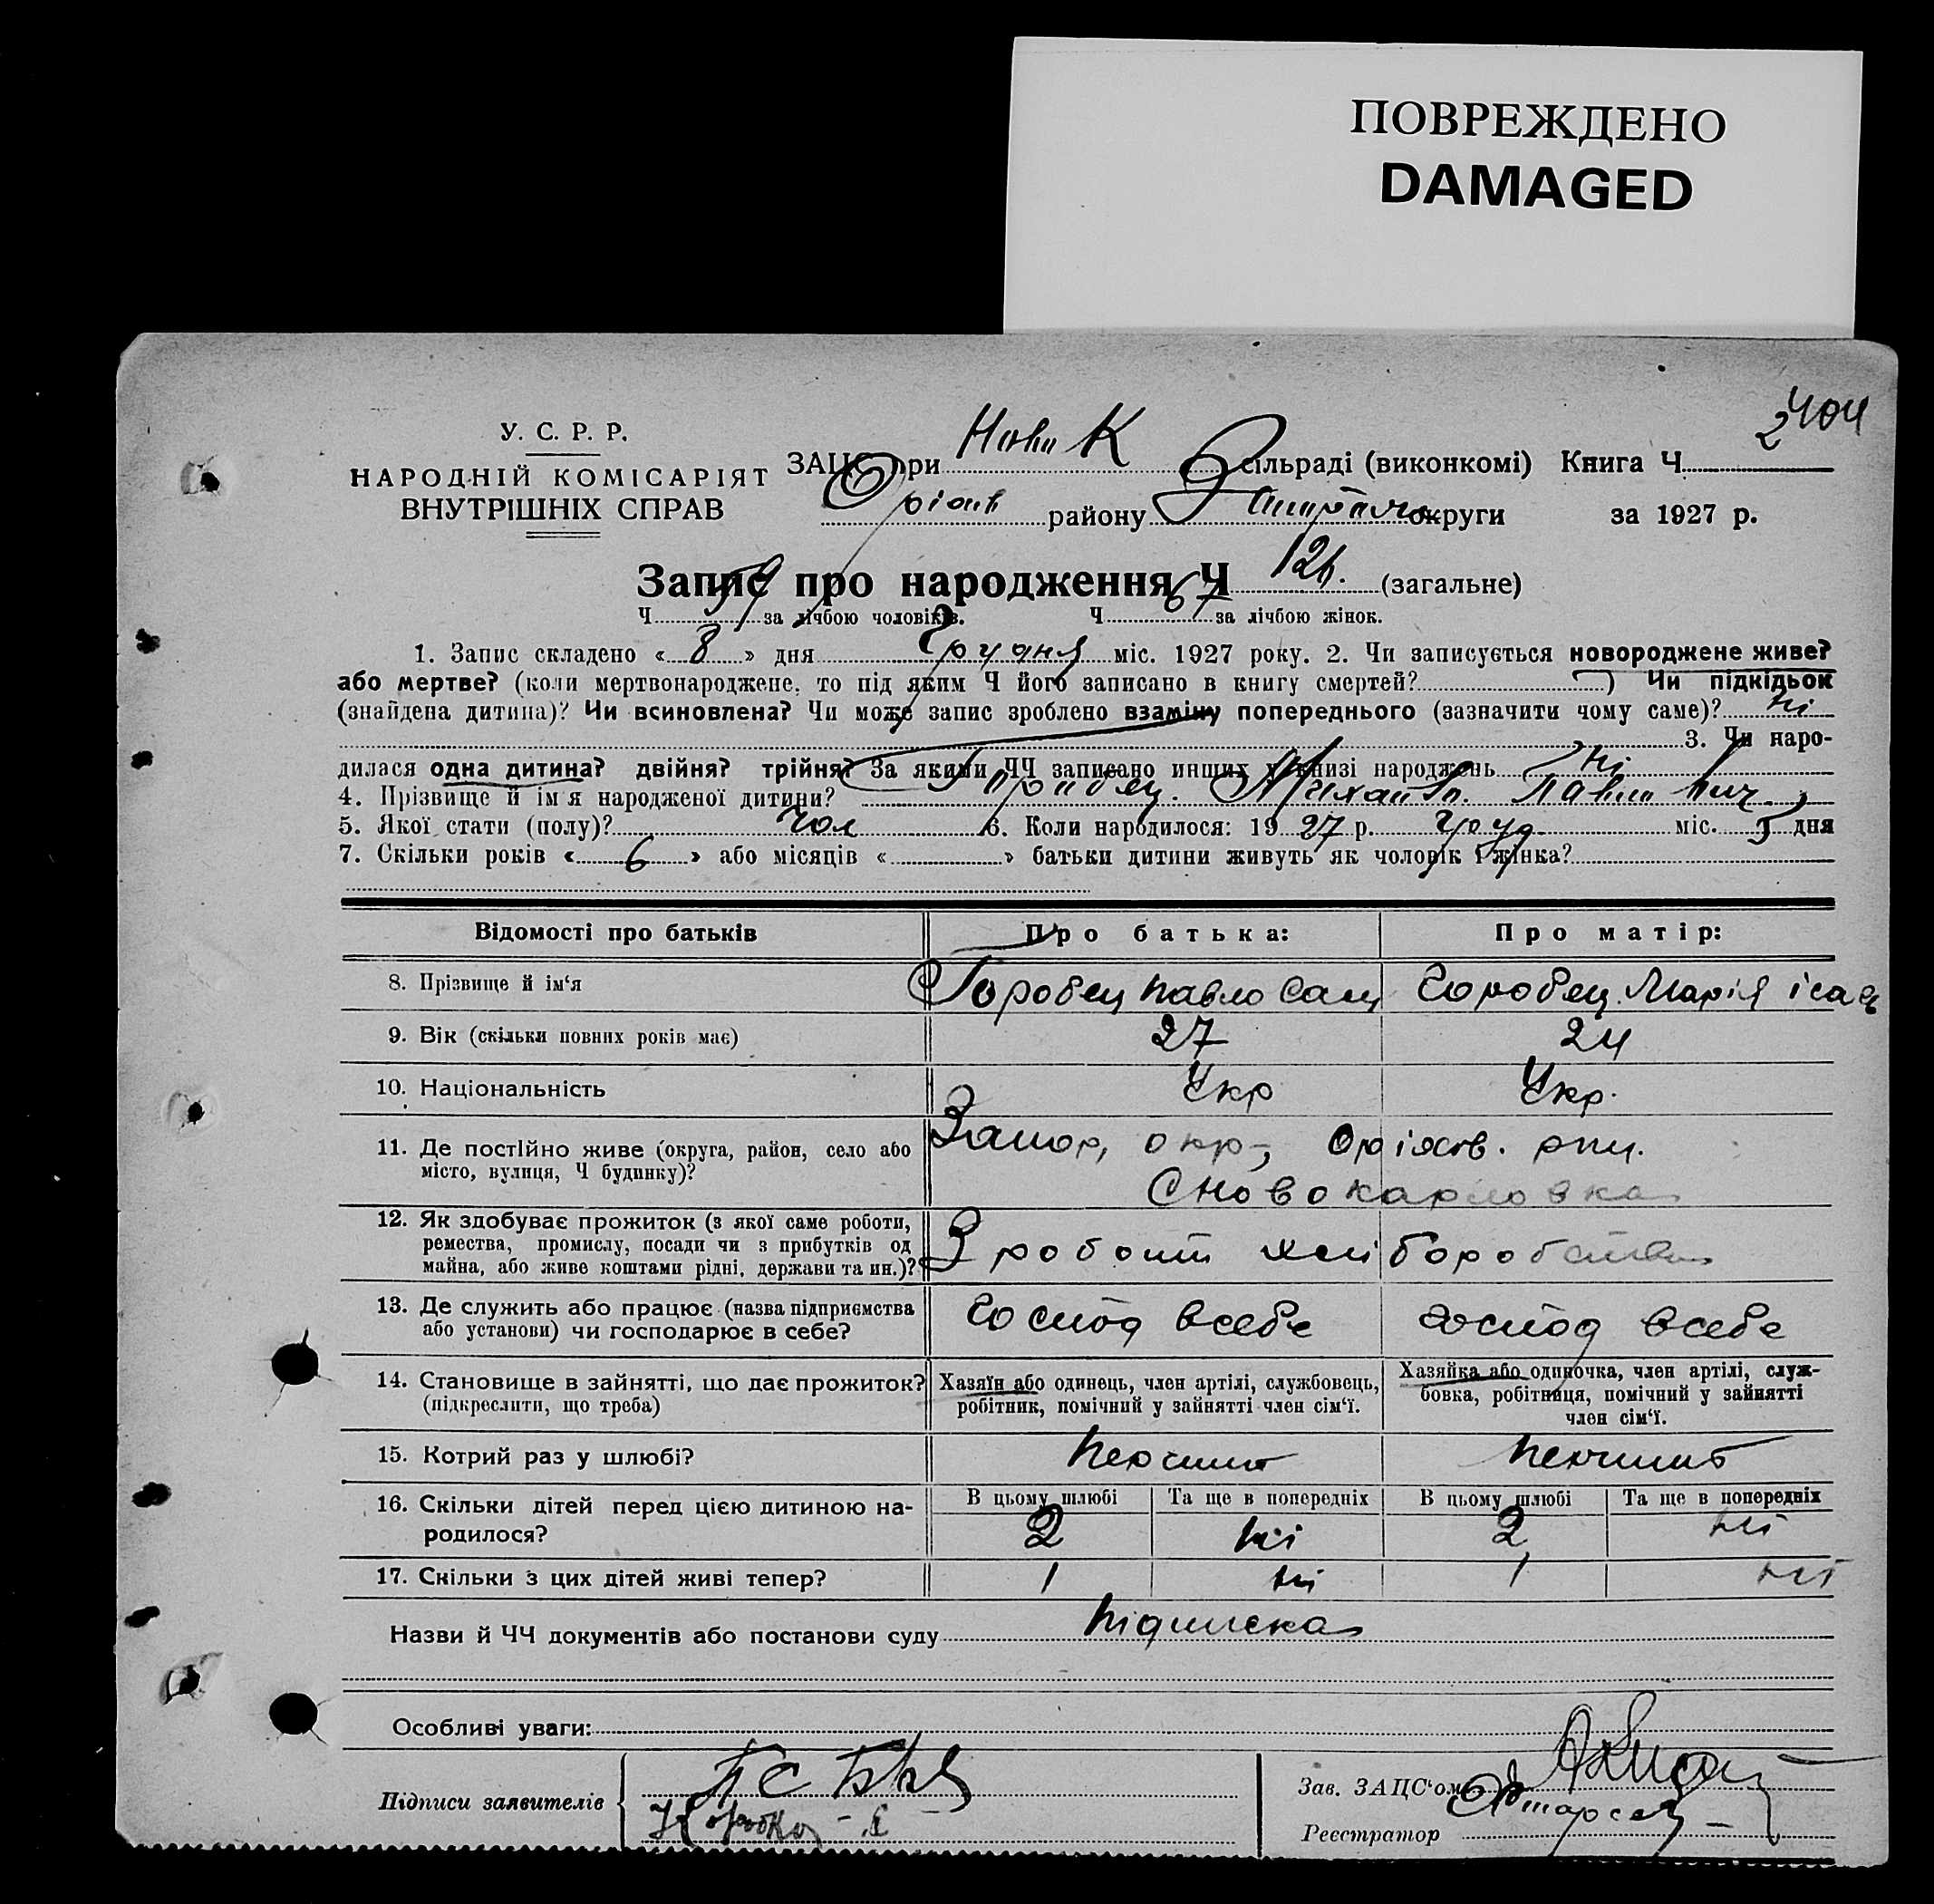 ПОВРЕЖДЕНО
DAMAGED
2404
У. С. Р. Р.
НАРОДНІЙ КОМІСАРІЯТ
ВНУТРІШНІХ СПРАВ
ЗАЦС при Ново К сільраді (виконкомі) Книга Ч.
Оріхів району округи за 1927 р.
Запис про народження Ч 126. (загальне)
Ч 59 за лічбою чоловіків. Ч 67 за лічбою жінок.
1. Запис складено « 8 » дня Грудня міс. 1927 року. 2. Чи записується новороджене живе?
або мертве? (коли мертвонароджене, то під яким Ч його записано в книгу смертей? ) Чи підкідьок
(знайдена дитина)? Чи всиновлена? Чи може запис зроблено взаміну попереднього (зазначити чому саме)? ні
3. Чи наро-
дилася одна дитина? двійня? трійня? За якими ЧЧ записано инших у книзі народжень ні
4. Прізвище й ім'я народженої дитини? Горобец. Михайло. Павлович
5. Якої стати (полу)? чол 6. Коли народилося: 19 27 р. груд міс. 5 дня
7. Скільки років « 6 » або місяців « » батьки дитини живуть як чоловік і жінка?
Відомості про батьків Про батька: Про матір:
8. Прізвище й ім'я Горобец Павло Сам Горобец Марія ісак
9. Вік (скільки повних років має) 27 24
10. Національність Укр Укр.
11. Де постійно живе (округа, район, село або Запор, окр-, Оріхів. рпн.
місто, вулиця, Ч будинку)? С Новокарловка
12. Як здобуває прожиток (з якої саме роботи,
ремества, промислу, посади чи з прибутків од З роботи хліборобства
майна, або живе коштами рідні, держави та ин.)?
13. Де служить або працює (назва підприємства Господ в себе господ в себе
або установи) чи господарює в себе?
14. Становище в зайнятті, що дає прожиток? Хазяїн або одинець, член артілі, службовець, Хазяйка або одиночка, член артілі, служ-
(підкреслити, що треба) робітник, помічний у зайнятті член сім'ї. бовка, робітниця, помічний у зайнятті
член сім'ї.
15. Котрий раз у шлюбі? Первий Первий
16. Скільки дітей перед цією дитиною на- В цьому шлюбі Та ще в попередніх В цьому шлюбі Та ще в попередніх
родилося? 2 ні 2 ні
17. Скільки з цих дітей живі тепер? 1 ні 1 ні
Назви й ЧЧ документів або постанови суду Підписка
Особливі уваги:
Підписи заявителів
Зав. ЗАЦС'ом
Реєстратор